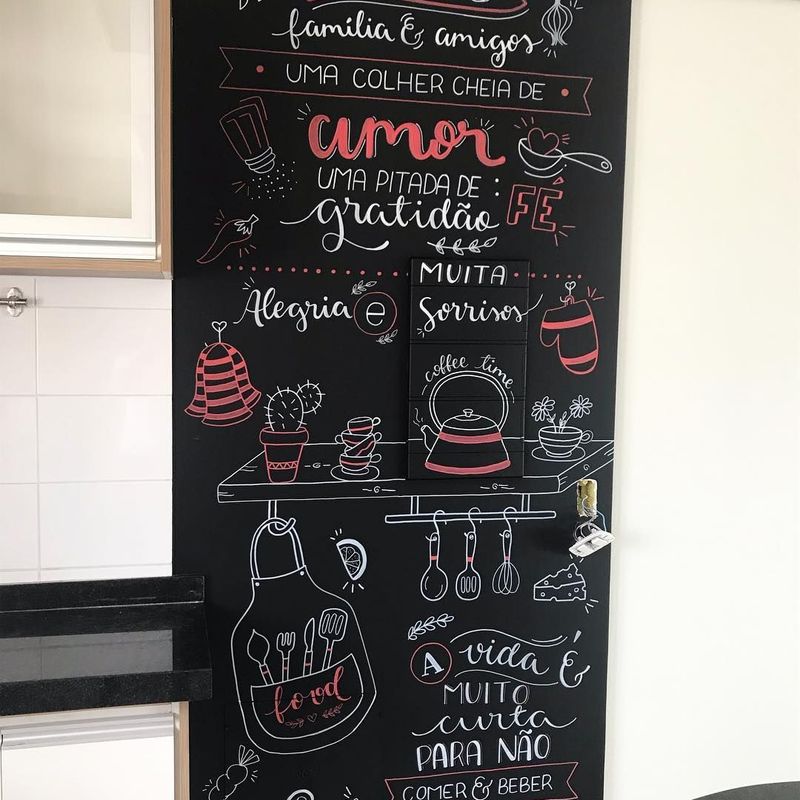 família & amigos
UMA COLHER CHEIA DE
amor
UMA PITADA DE :
gratidão FÉ
MUITA
Alegria e Sorrisos
coffee time
food
A vida é
MUITO
curta
PARA NÃO
COMER & BEBER